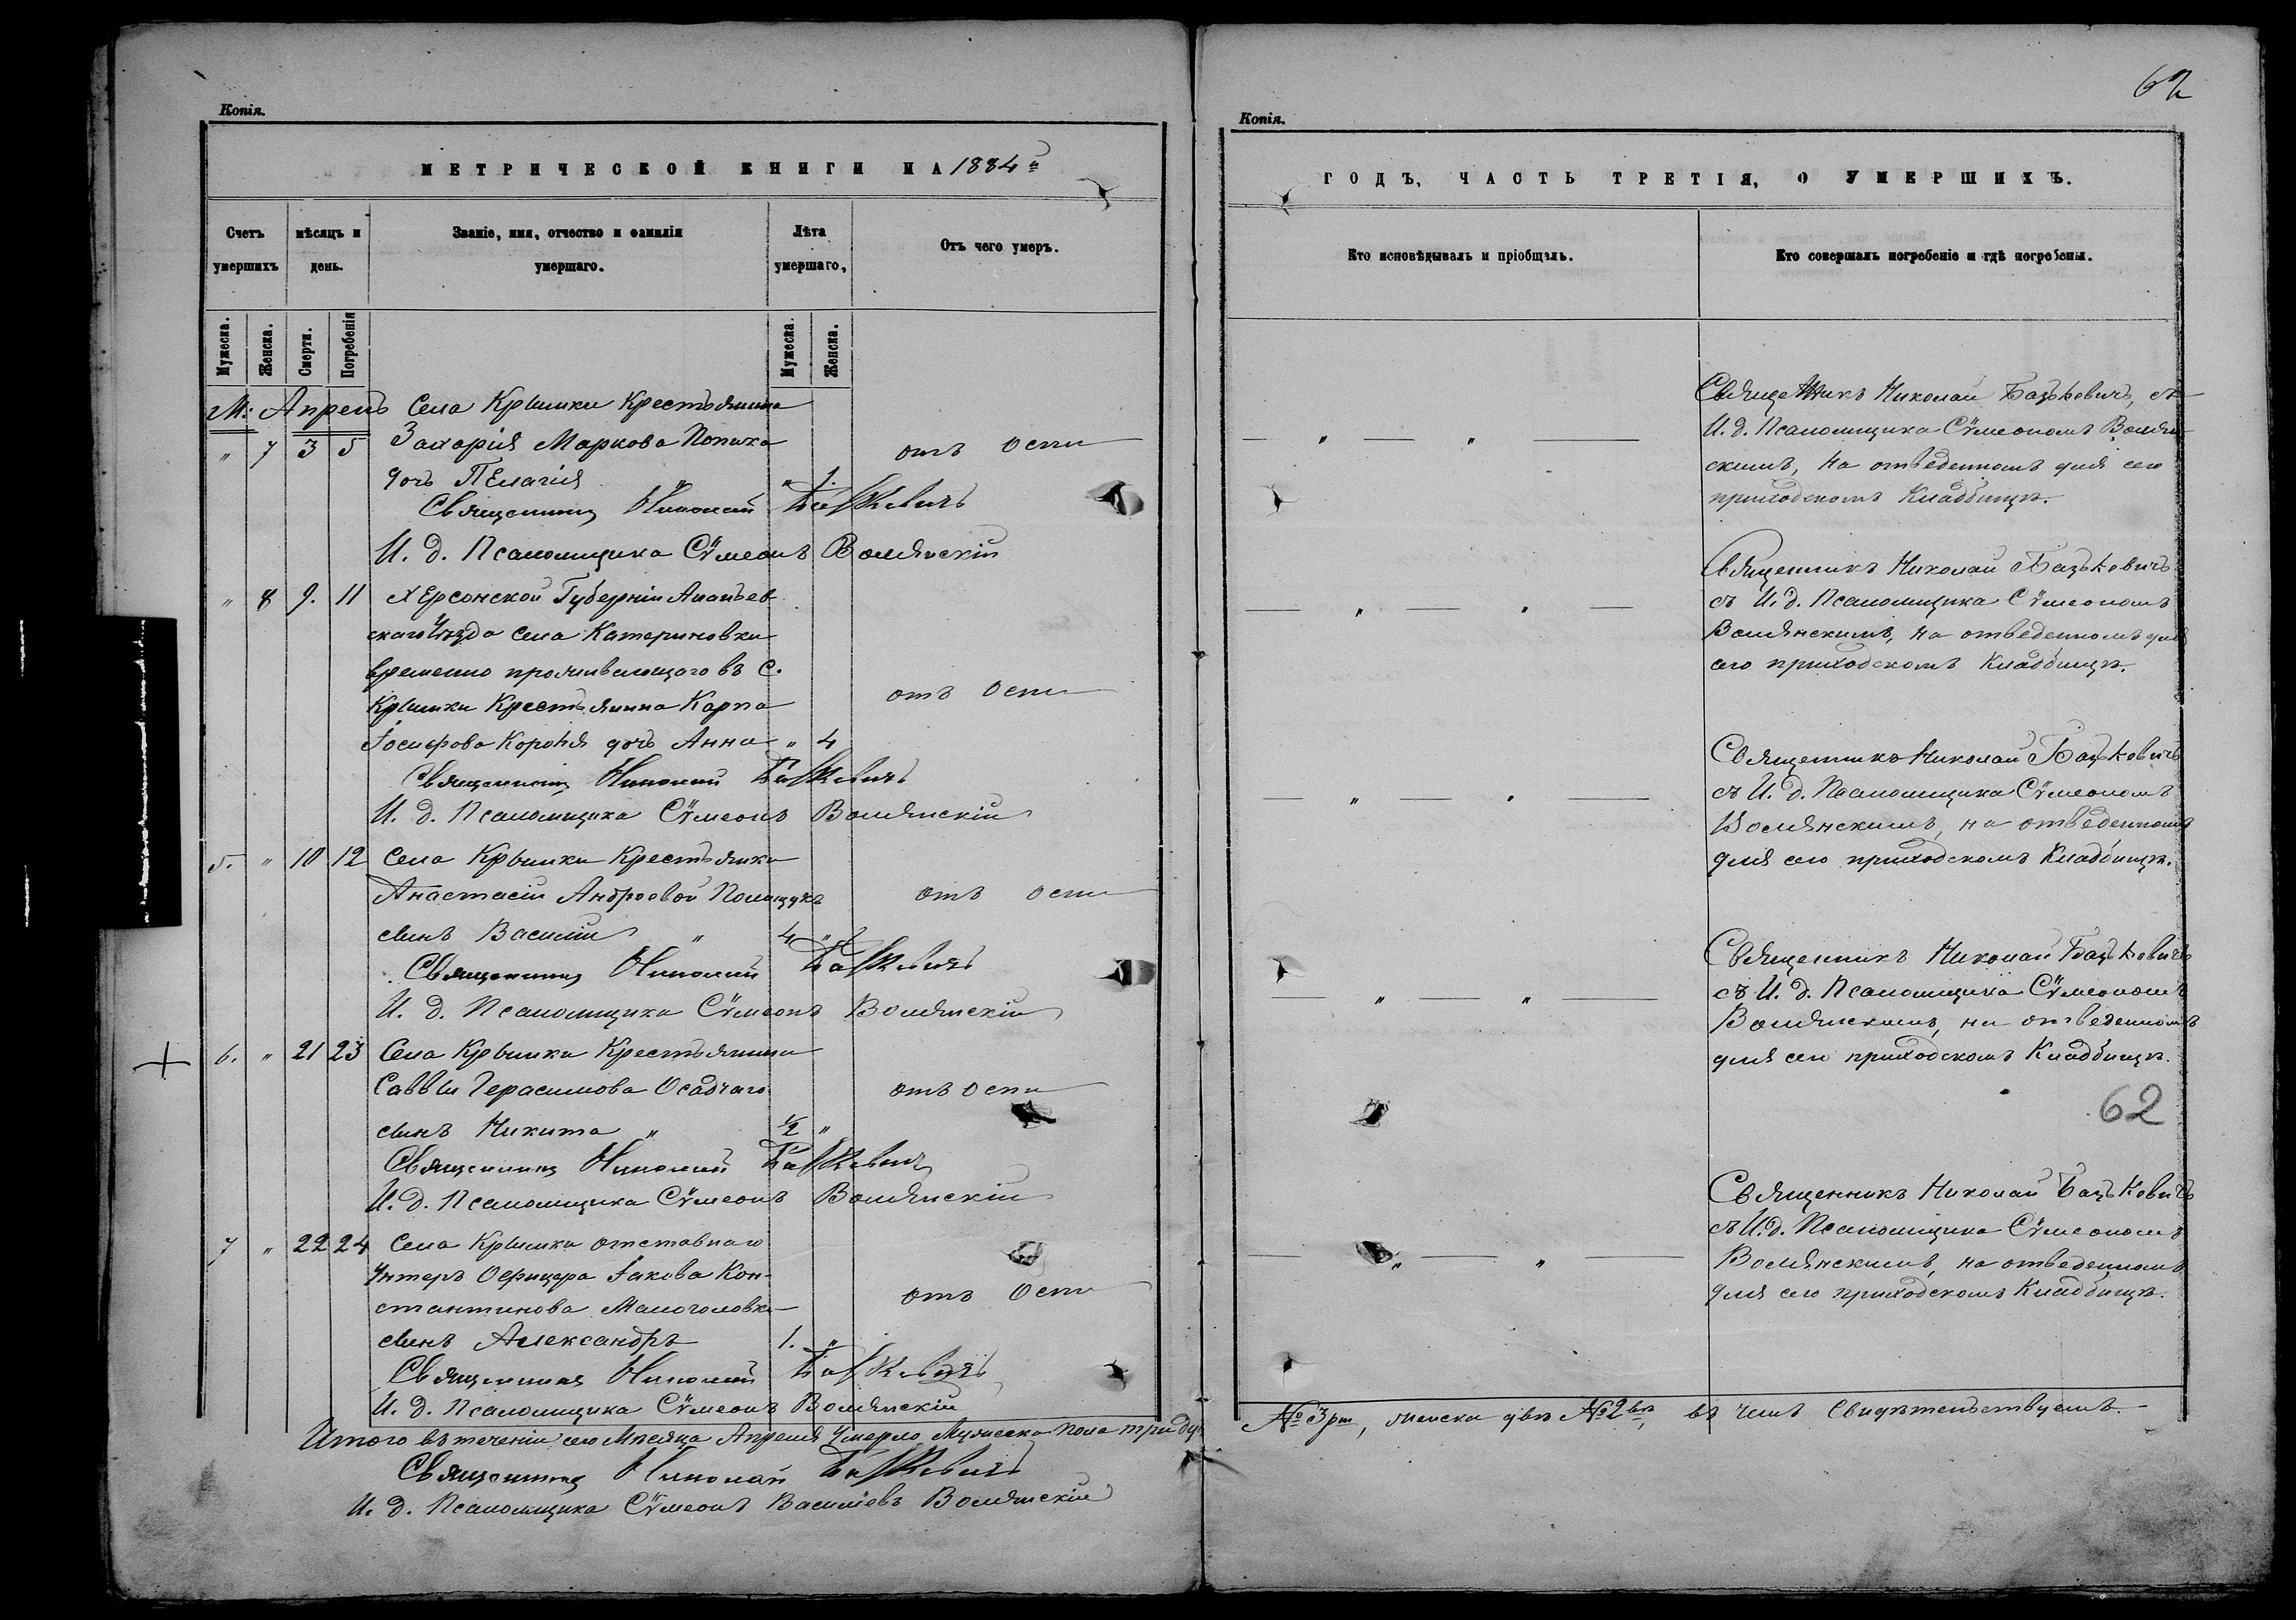 Копія.
МЕТРИЧЕСКОЙ КНИГИ НА 1884й
Счетъ умершихъ
мѣсяцъ и день.
Званіе, имя, отчество и фамилія умершаго.
Лѣта умершаго,
Отъ чего умеръ.
Мужеска.
Женска.
Смерти.
Погребенія
Мужеска.
Женска.
М: Апрель Села Крымки Крестьянина
" 7 3 5 Захарія Маркова Попика отъ Оспы
дочь Пелагія " 1.
Священникъ Николай Бацкевичъ
И. д. Псаломщика Сѵмеонъ Волянскій
" 8 9. 11 Херсонской Губерніи Ананьев
скаго Уѣзда села Катериновки
временно проживающаго въ с.
Крымки Крестьянина Карпа отъ Оспы
Іосифова дочь Анна " 4
Священникъ Николай Бацкевичъ
И. д. Псаломщика Сѵмеонъ Волянскій
5. " 10 12 Села Крымки Крестьянки
Анастасіи Андреевой Полищукъ отъ Оспы
сынъ Василій " 4 "
Священникъ Николай Бацкевичъ
И. д. Псаломщика Сѵмеонъ Волянскій
6. " 21 23 Села Крымки Крестьянина
Саввы Герасимова Осадчаго отъ Оспы
сынъ Никита " 1/2 "
Священникъ Николай Бацкевичъ
И. д. Псаломщика Сѵмеонъ Волянскій
7 " 22 24 Села Крымки отставнаго
Унтеръ Офицера Іакова Кон-
стантинова Малоголовки отъ Оспы
сынъ Александръ 1. "
Священникъ Николай Бацкевичъ
И. д. Псаломщика Сѵмеонъ Волянскій
Итого въ теченіи сего Мѣсяца Апреля Умерло Мужеска пола три ду.
Священникъ Николай Бацкевичъ
И. д. Псаломщика Сѵмеонъ Васильевъ Волянскій
62
Копія.
ГОДЪ, ЧАСТЬ ТРЕТІЯ, О УМЕРШИХЪ.
Кто исповѣдывалъ и пріобщалъ.
Кто совершалъ погребеніе и гдѣ погребены.
Священникъ Николай Бацькевичъ, съ
— " — " — И. д. Псаломщика Сѵмеономъ Волян-
скимъ, на отведенномъ для сего
приходскомъ Кладбищѣ.
Священникъ Николай Бацькевичъ
— " — " — съ И. д. Псаломщика Сѵмеономъ
Волянскимъ, на отведенномъ для
сего приходскомъ Кладбищѣ.
Священникъ Николай Бацькевичъ
— " — " — съ И. д. Псаломщика Сѵмеономъ
Волянскимъ, на отведенномъ
для сего приходскомъ Кладбищѣ.
Священникъ Николай Бацькевичъ
— " — " — съ И. д. Псаломщика Сѵмеономъ
Волянскимъ, на отведенномъ
для сего приходскомъ Кладбищѣ.
62
Священникъ Николай Бацькевичъ
съ И. д. Псаломщика Сѵмеономъ
— " — " — Волянскимъ, на отведенномъ
для сего приходскомъ Кладбищѣ.
№ 3ри, женска двѣ № 2вѣ, въ чемъ Свидѣтельствуемъ.